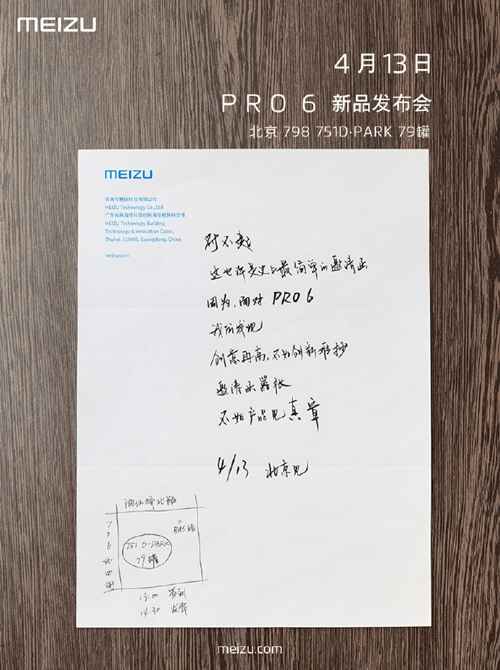 MEIZU
4月13日
PRO 6 新品发布会
北京 798 751D·PARK 79罐
MEIZU
珠海市魅族科技有限公司
MEIZU Technology Co., Ltd.
MEIZU Technology Building
Technology & Innovation Coast,
Zhuhai, Guangdong, China
对不起
这也许是史上最简单的邀请函
因为，面对 PRO 6
我们发现
创意再高，不如创新秘抄
邀请函嚣张
不如产品见真章
4/13 北京见
751 D-PARK
79罐
14:30 发布
meizu.com